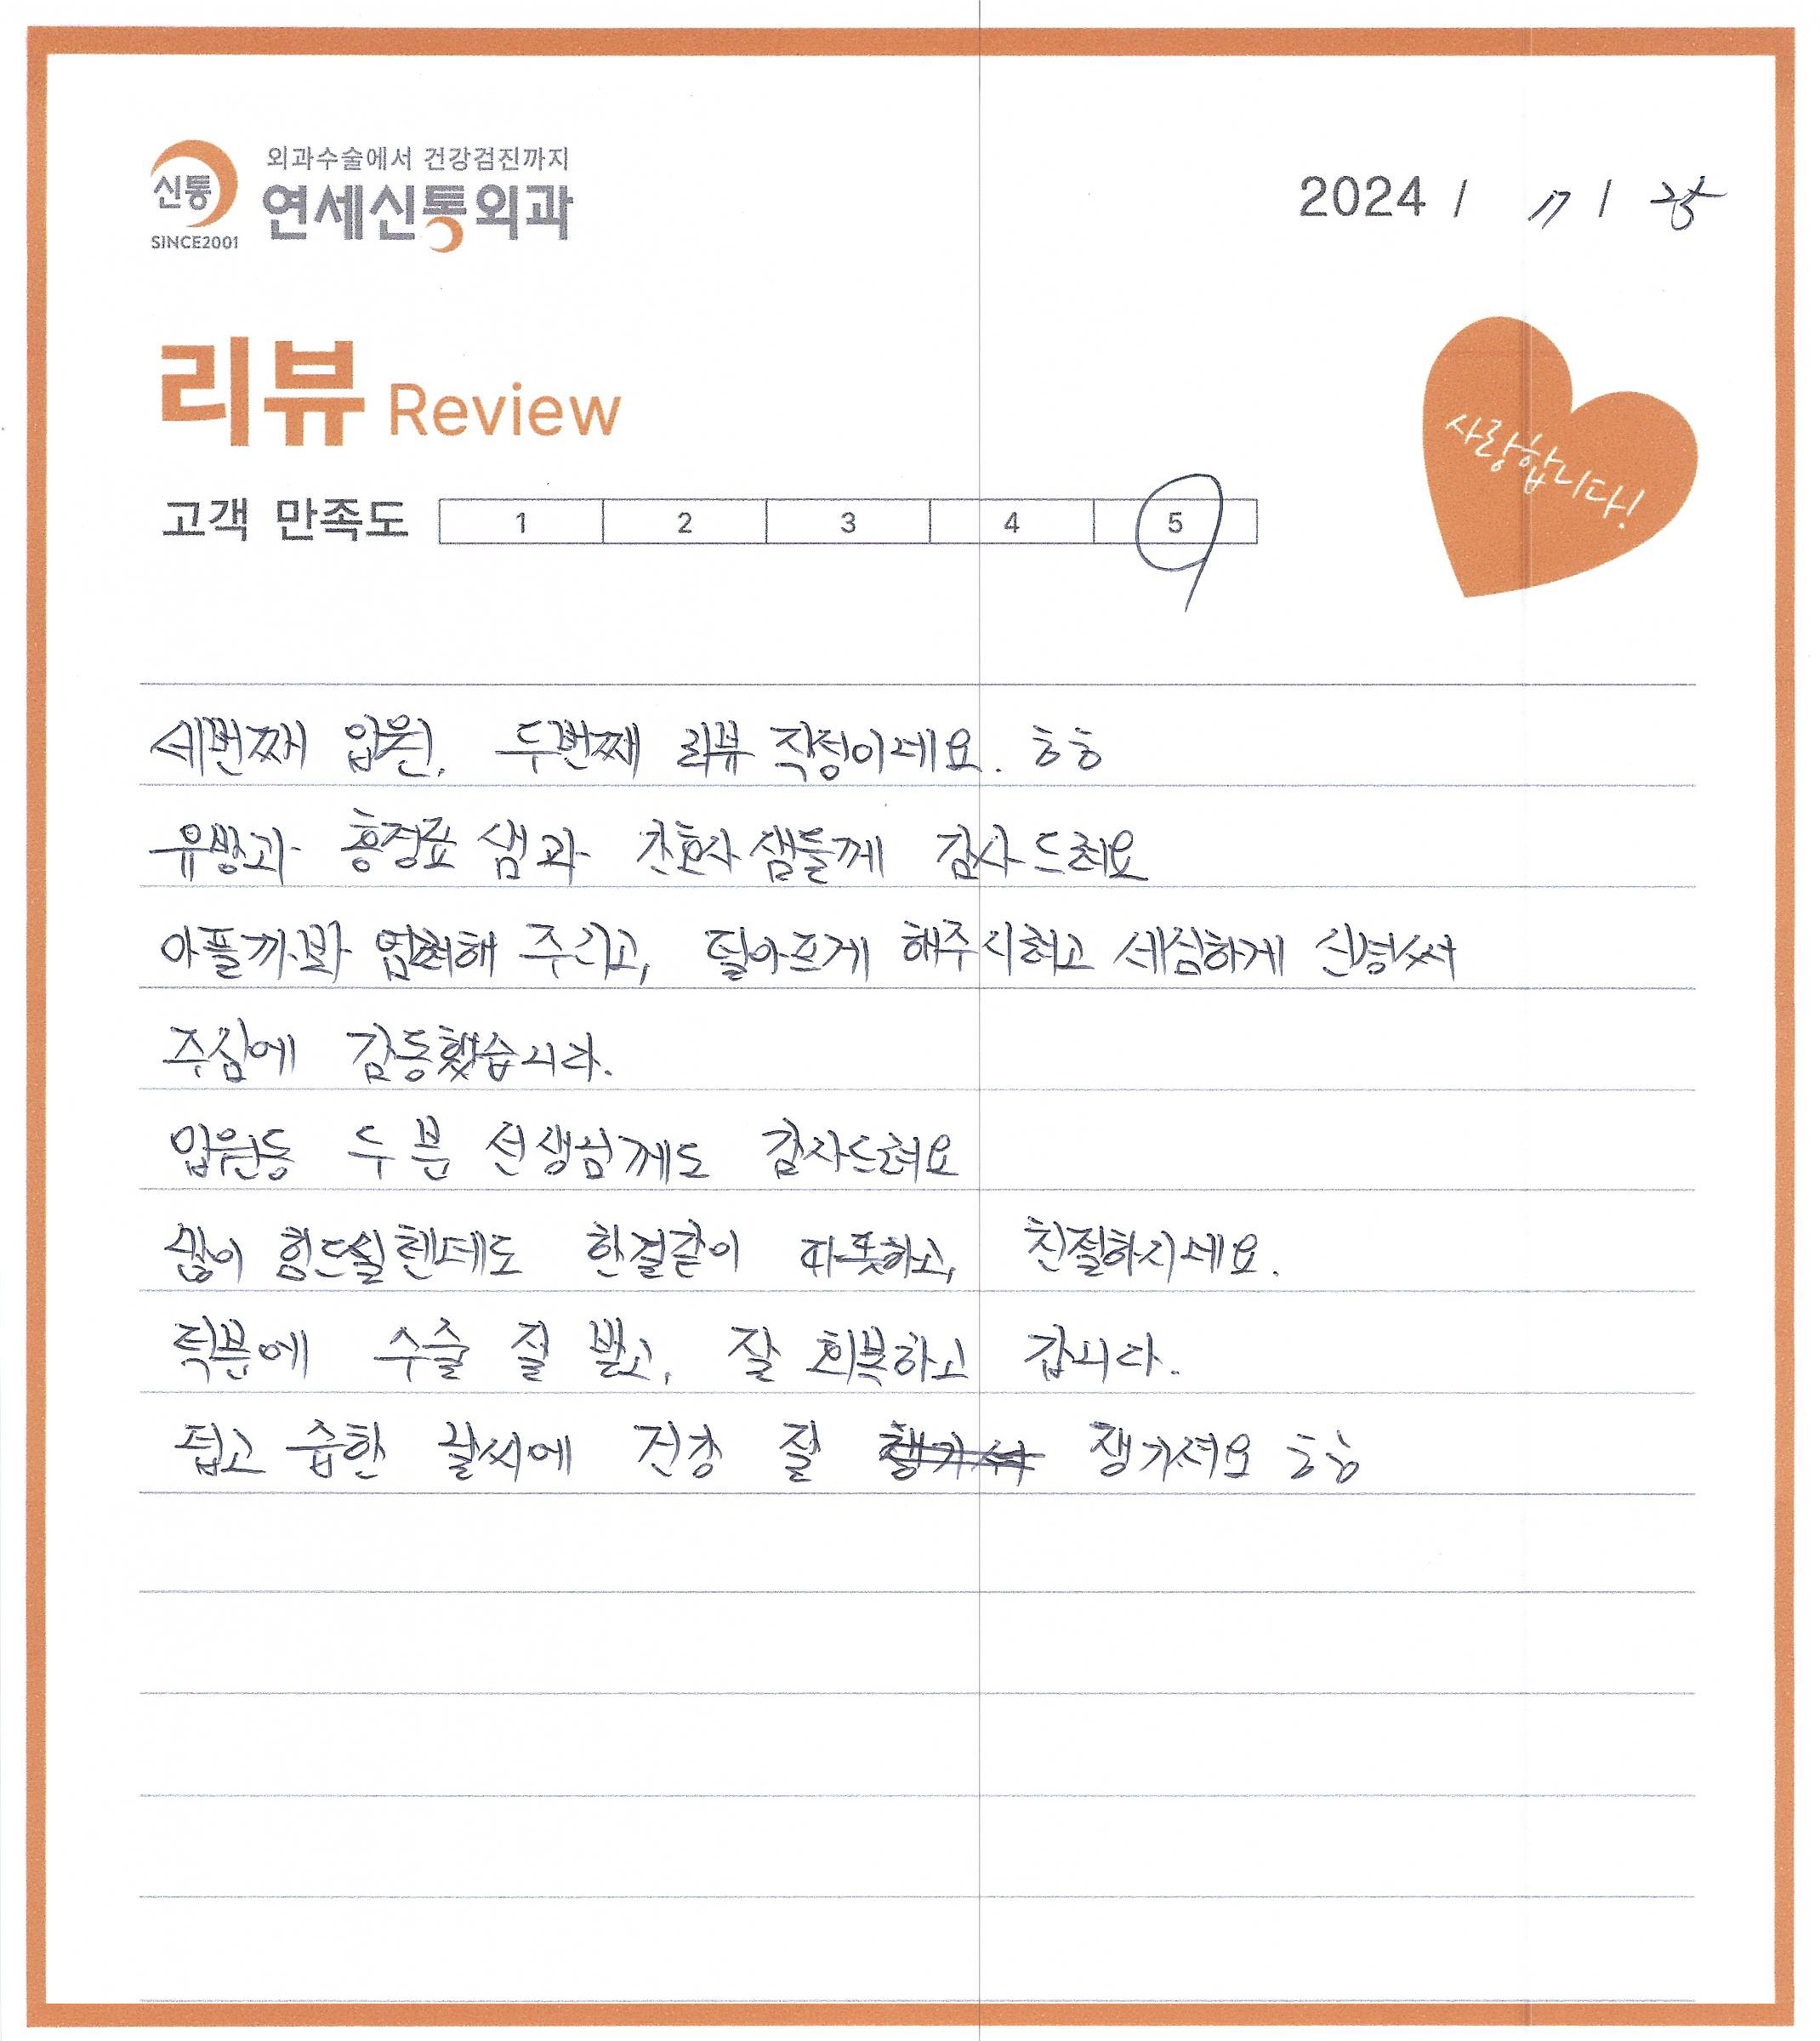 외과수술에서 건강검진까지
신통
연세신통외과
SINCE2001
2024 / 7 / 25
리뷰 Review
사랑합니다!
고객 만족도 1 2 3 4 5
세번째 입원, 두번째 리뷰 작성이네요. ㅎㅎ
유방과 홍정표 샘과 간호사샘들께 감사드려요
아플까봐 염려해 주시고, 덜아프게 해주시려고 세심하게 신경써
주심에 감동했습니다.
입원동 두 분 선생님께도 감사드려요
많이 힘드실텐데도 한결같이 따뜻하고, 친절하시네요.
덕분에 수술 잘 받고, 잘 회복하고 갑니다.
덥고 습한 날씨에 건강 잘 챙기셔요 ㅎㅎ